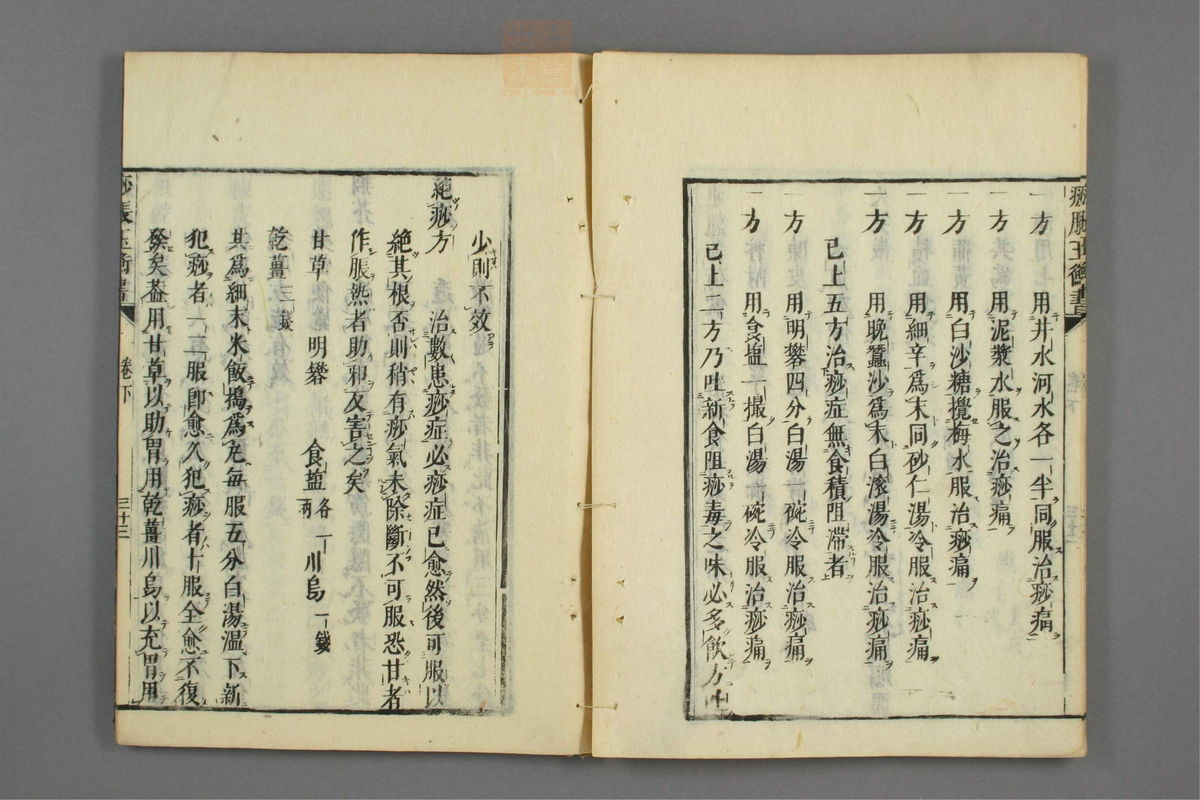 痧脹玉衡書
一方 用井水河水各一半同服治痧痛
一方 用泥漿水服之治痧痛
一方 用白沙糖攪梅水服治痧痛
一方 用細辛爲末同砂仁湯冷服治痧痛
一方 用晚蠶沙爲末白滾湯冷服治痧痛
已上五方治痧症無食積阻滯者
一方 用明礬四分白湯一碗冷服治痧痛
一方 用食塩一撮白湯一碗冷服治痧痛
已上二方乃吐新食阻痧毒之味必多飲方吐
少則不效
絶痧方 治數患痧症必痧症已愈然後可服以
絶其根否則稍有痧氣未除斷不可服恐甘者
作脹熱者助邪反害之矣
甘草 明礬 食塩各一兩 川烏一錢
乾薑三錢
共爲細末米飯搗爲丸每服五分白湯溫下新
犯痧者一二服即愈久犯痧者十服全愈不復
發矣葢用甘草以助胃用乾薑川烏以充胃用
痧脹玉衡書 卷下 三十三